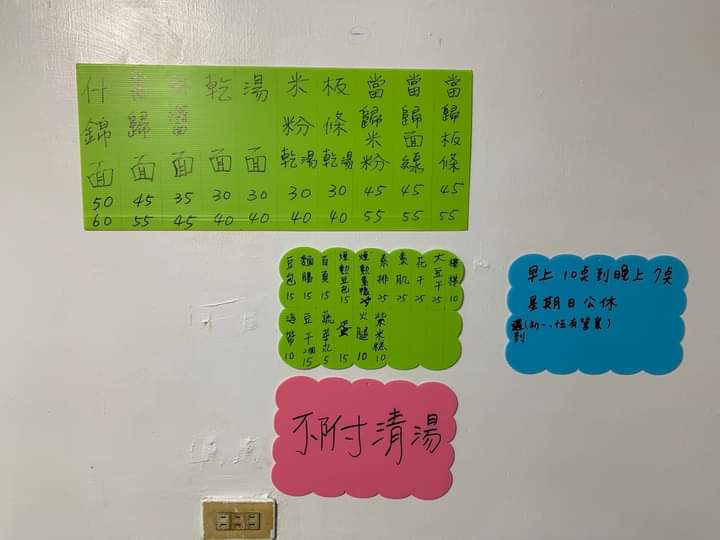 什錦面 50 60
當歸面 45 55
面 35 45
乾面 30 40
湯面 30 40
米粉乾湯 30 40
板條乾湯 30 40
當歸米粉 45 55
當歸面線 45 55
當歸板條 45 55
豆包 15
麵腸 15
百頁 15
煙勳豆包 15
煙勳素鴨 25
素排 25
素肌 25
花干 25
大豆干 25
10
海帶 10
豆干2個 15
蔬菜丸 5
蛋 15
火腿 10
紫米糕 10
早上10奌到晚上7奌
星期日公休
遇到(初一、伍有營業)
不附清湯